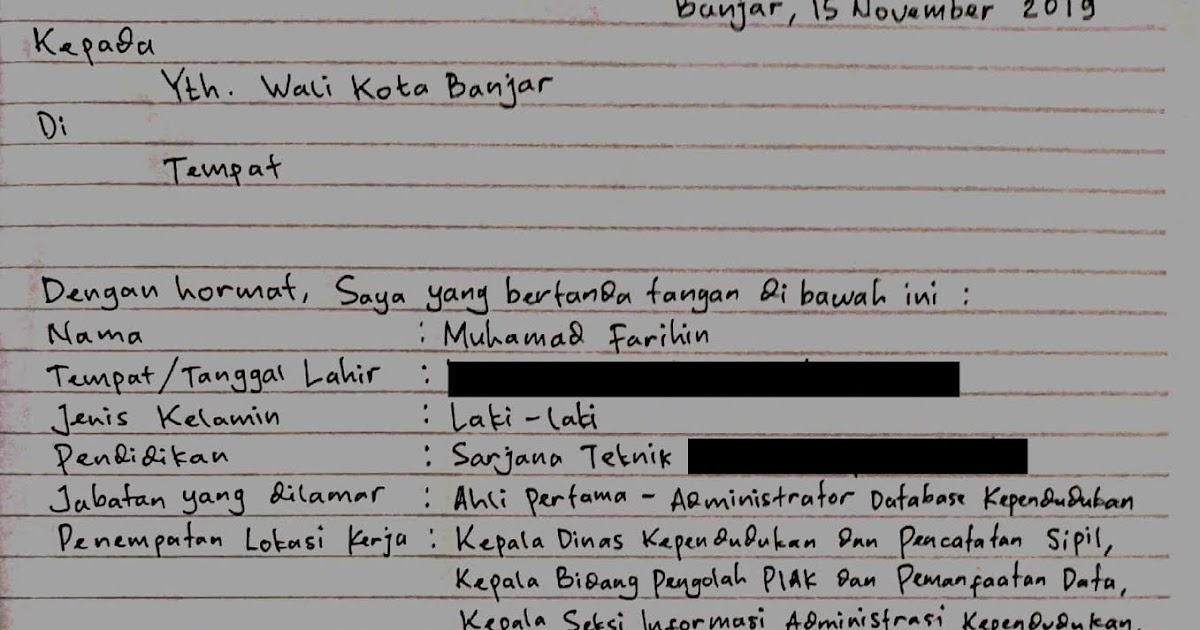 Banjar, 15 November 2019
Kepada
Yth. Wali Kota Banjar
Di
Tempat
Dengan hormat, Saya yang bertanda tangan di bawah ini :
Nama : Muhamad Farihin
Tempat/Tanggal Lahir :
Jenis Kelamin : Laki-laki
Pendidikan : Sarjana Teknik
Jabatan yang dilamar : Ahli Pertama - Administrator Database Kependudukan
Penempatan Lokasi Kerja : Kepala Dinas Kependudukan dan Pencatatan Sipil,
Kepala Bidang Pengolah PIAK dan Pemanfaatan Data,
Kepala Seksi Informasi Administrasi Kependudukan,